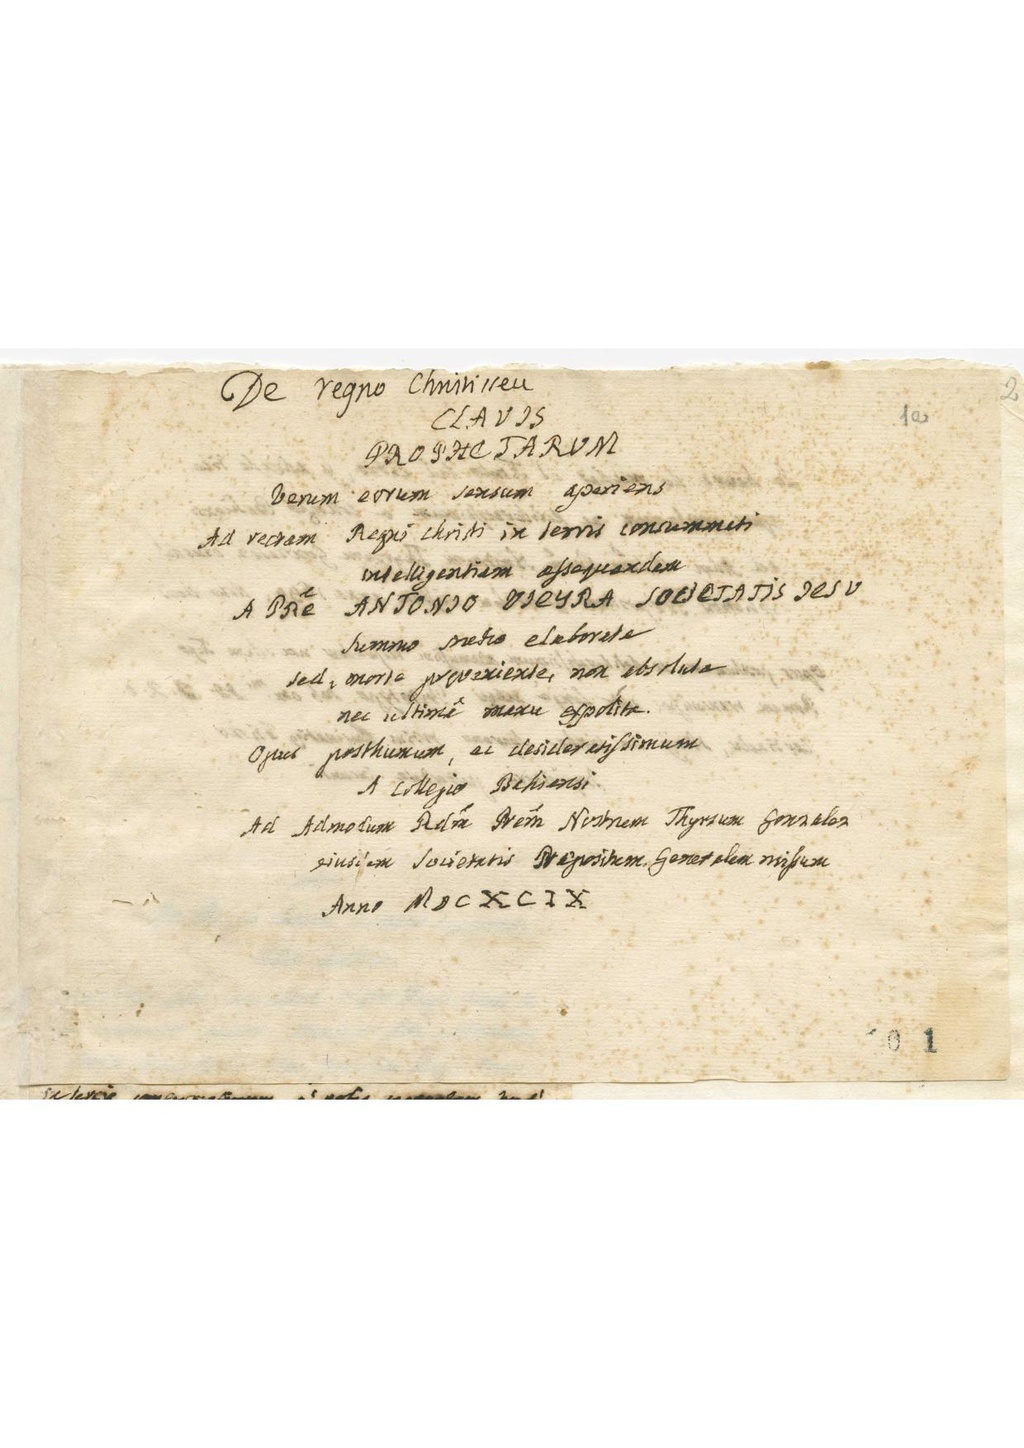 De regno Christi seu
2
1a
CLAVIS
PROPHETARUM
Verum eorum sensum aperiens
Ad rectam Regni Christi in terris consummati
intelligentiam assequendam
A PRẽ ANTONIO VIEYRA SOCIETATIS JESU
summo studio elaborata
sed, morte præveniente, non absoluta
nec ultimâ manu expolita.
Opus posthumum, ac desideratissimum
A Collegio Bahiensi
Ad Admodum Rdm̃ Prem̃ Nostrum Thyrsum Gonzalez
eiusdem Societatis Præpositum Generalem missum
Anno MDCXCIX
01